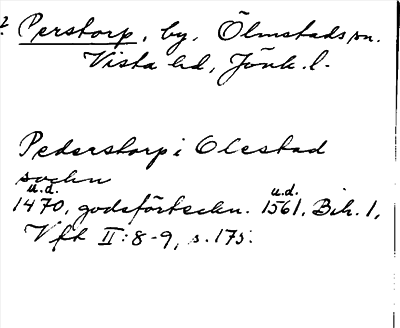 ? Perstorp, by, Ölmstads sn.
Vista hd, Jönk. l.
Pederstorp i Olestad
sockn
u.d. u.d.
1470, godsförteckn. 1561, Bih. 1,
Vfk II:8-9, s. 175.